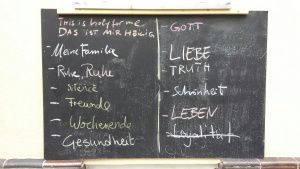 This is holy for me
DAS IST MIR HEILIG
- Meine Familie
- Ruhe, Ruhe
- Freunde
- Wochenende
- Gesundheit
- GOTT
- LIEBE
TRUTH
- Schönheit
- LEBEN
- Loyalität